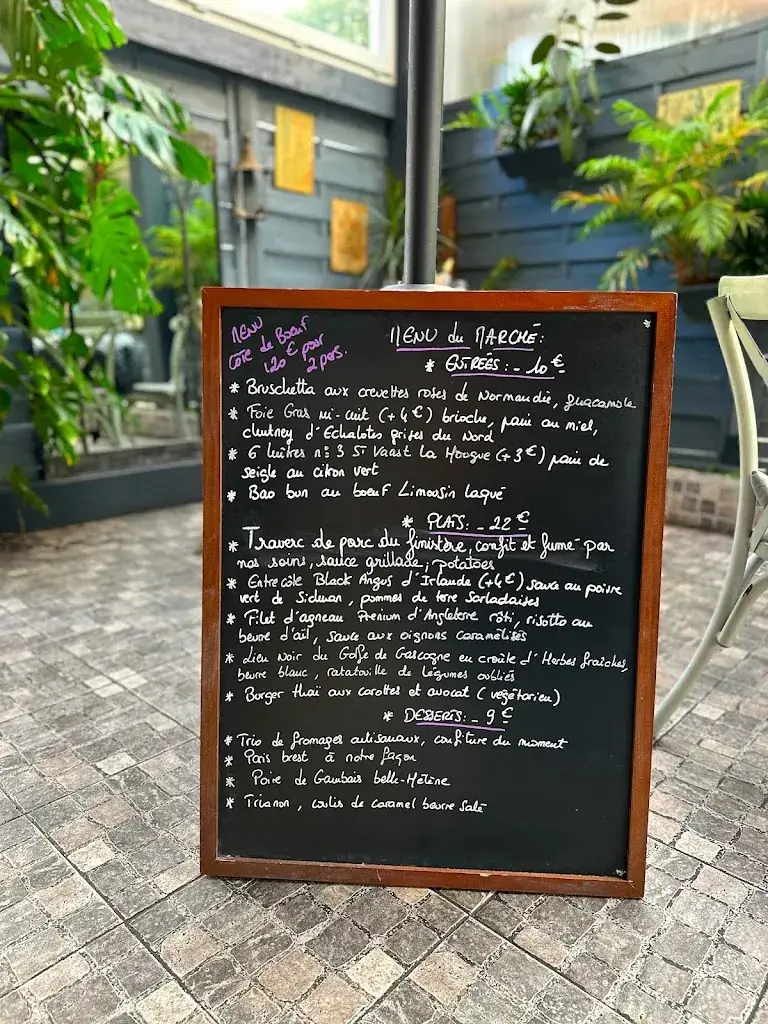 MENU
CÔTE de BŒUF
120 € pour
2 pers.
MENU du MARCHÉ:
* ENTRÉES: - 10 €
* Bruschetta aux crevettes roses de Normandie, guacamole
* Foie Gras mi-cuit (+4€) brioche, pain au miel,
chutney d'Echalotes grises du Nord
* 6 huîtres n°3 St Vaast La Hougue (+3€) pain de
seigle au citron vert
* Bao bun au boeuf Limousin laqué
* PLATS: - 22 €
* Travers de porc du finistère, confit et fumé par
nos soins, sauce grillade, potatoes
* Entrecôte Black Angus d'Irlande (+4€) sauce au poivre
vert de Sichuan, pommes de terre Sarladaises
* Filet d'agneau Premium d'Angleterre rôti, risotto au
beurre d'ail, sauce aux oignons caramélisés
* Lieu Noir du Golfe de Gascogne en croûte d'Herbes fraîches,
beurre blanc, ratatouille de légumes oubliés
* Burger thaï aux carottes et avocat (végétarien)
* DESSERTS: - 9 €
* Trio de fromages artisanaux, confiture du moment
* Paris brest à notre façon
* Poire de Gambais belle-Hélène
* Trianon, coulis de caramel beurre salé